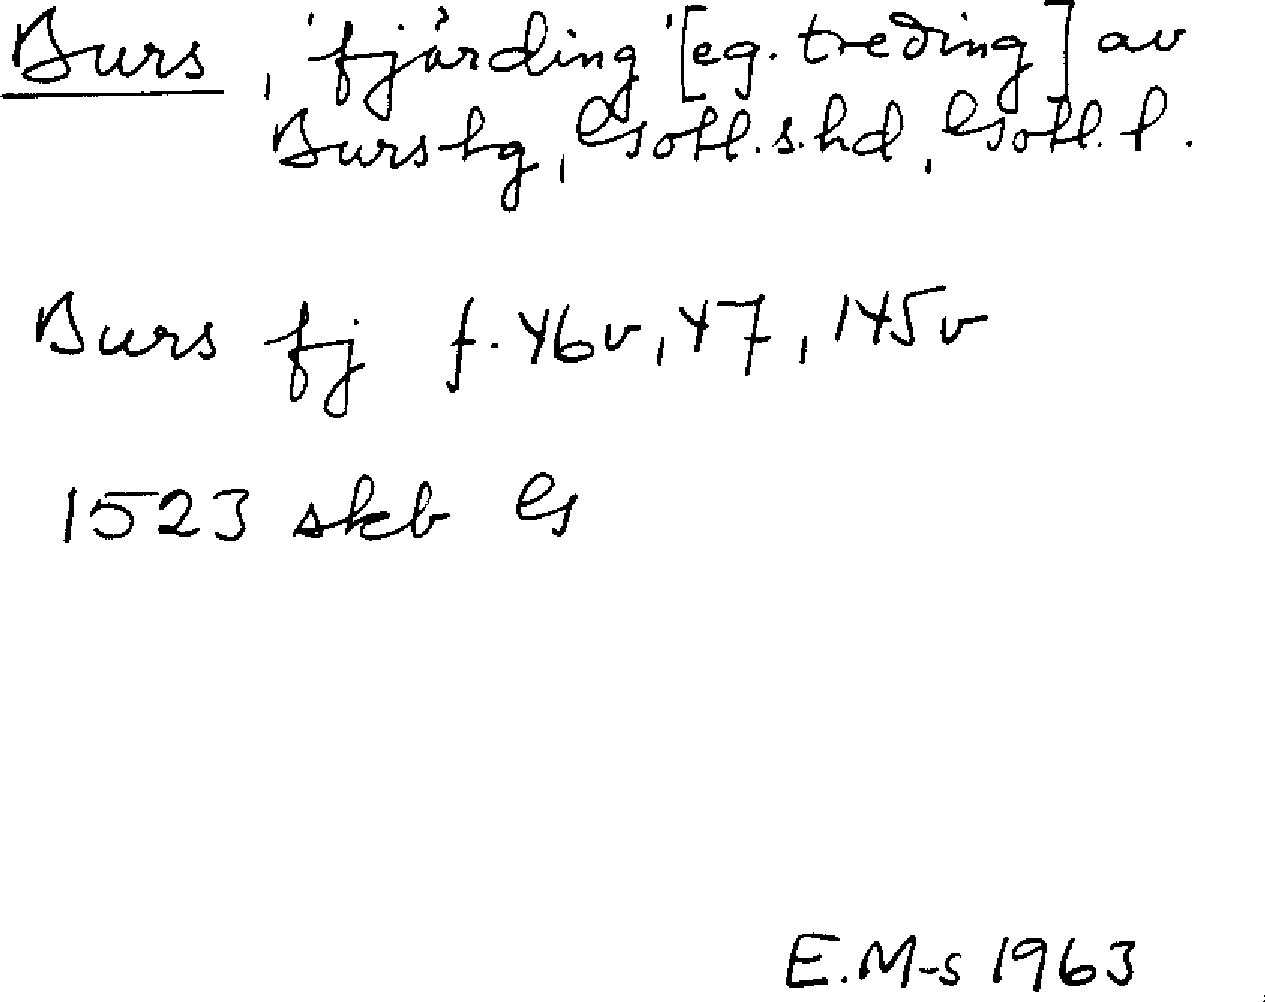 Burs, 'fjärding' [eg. treding] av
Burs tg, Gotl. s. hd, Gotl. l.
Burs fj f. 46v, 47, 145v
1523 skb G
E.M-s 1963